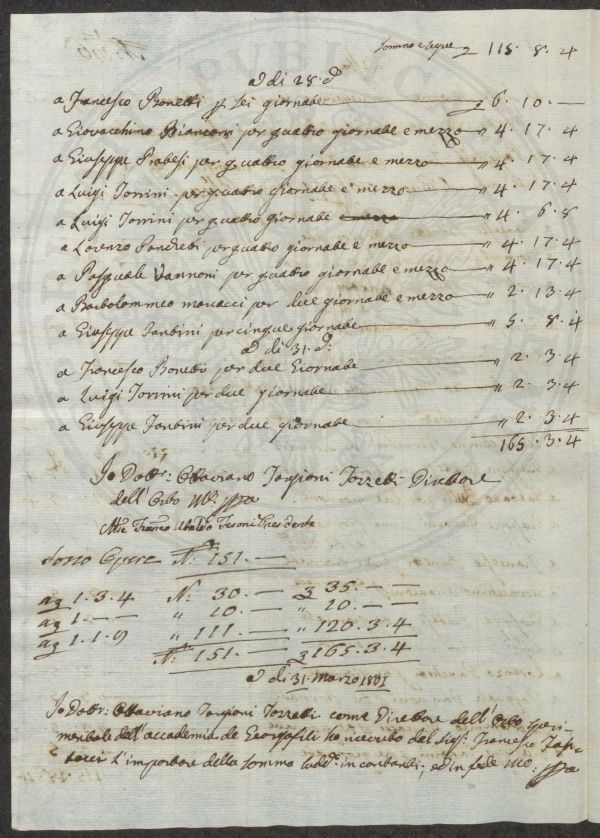 Somma e segue £ 115. 8. 4
A di 28. d.°
a Francesco Bonetti p. sei giornate £ 6. 10. —
a Giovacchino Bianconi per quattro giornate e mezzo " 4. 17. 4
a Giuseppe per quattro giornate e mezzo " 4. 17. 4
a Luigi Torrini per quattro giornate e mezzo " 4. 17. 4
a Luigi Torrini per quattro giornate " 4. 6. 8
a Lorenzo per quattro giornate e mezzo " 4. 17. 4
a Pasquale Vannoni per quattro giornate e mezzo " 4. 17. 4
a Bartolommeo per due giornate e mezzo " 2. 13. 4
a Giuseppe Tantini per cinque giornate " 5. 8. 4
A di 31. d.°
a Francesco Bonetti per due Giornate " 2. 3. 4
a Luigi Torrini per due giornate " 2. 3. 4
a Giuseppe Tantini per due giornate " 2. 3. 4
165. 3. 4
Io Dottr: Ottaviano Targioni Tozzetti Direttore
dell'Orto
Presidente
Sono Opere N.° 151. —
a £ 1. 3. 4 N.° 30. — £ 35. — —
a £ 1. — — " 10. — " 10. — —
a £ 1. 1. 9 " 111. — " 120. 3. 4
N.° 151. — £ 165. 3. 4
A di 31. Marzo 1801
Io Dottr: Ottaviano Targioni Tozzetti come Direttore dell'Orto speri-
mentale dell'accademia de Georgofili ho ricevuto dal Sig.r Francesco
l'importare della somma sudd.a in contanti, ed in fede